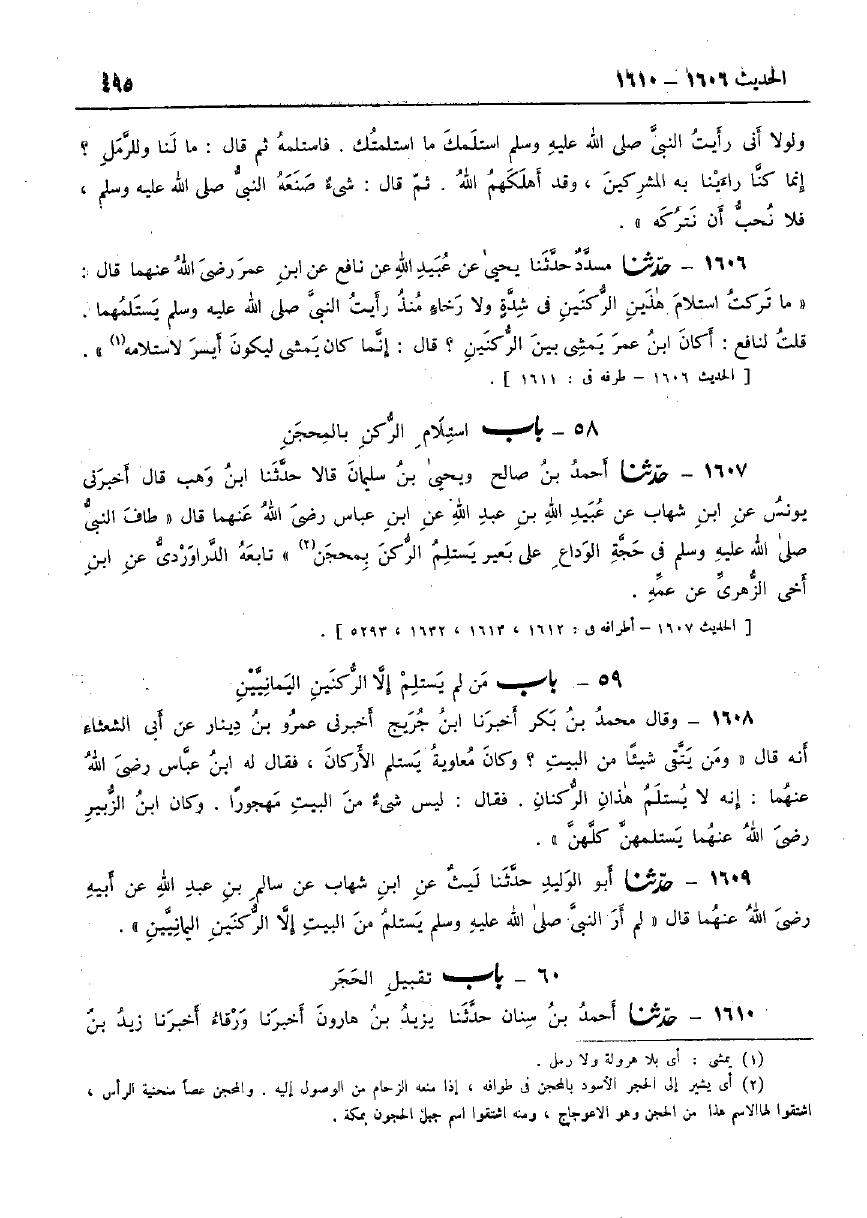 الحديث ١٦٠٦ – ١٦١٠ ٤٩٥
ولولا أنى رأيتُ النبىَّ صلى الله عليهِ وسلم استلَمكَ ما استلمتُك . فاستلمهُ ثم قال : ما لَنا وللرَّمَلِ ؟
إنما كنَّا راءَيْنا به المشرِكينَ ، وقد أهلَكَهمُ اللهُ . ثمّ قال : شىءٌ صَنَعَهُ النبىُّ صلى الله عليه وسلم ،
فلا نُحبُّ أن نَترُكَه » .
١٦٠٦ – حدّثنا مسدَّدٌ حدَّثَنا يحيىٰ عن عُبَيدِ اللهِ عن نافع عن ابنِ عمرَ رضىَ اللهُ عنهما قال :
« ما تَركتُ استلامَ هٰذَينِ الرُّكنَينِ فى شِدَّةٍ ولا رَخاءٍ مُنذُ رأيتُ النبىَّ صلى الله عليه وسلم يَستَلمُهما .
قلتُ لنافع : أكانَ ابنُ عمرَ يَمشِى بينَ الرُّكنَينِ ؟ قال : إنَّما كان يَمشى ليكونَ أيسرَ لاستلامه(١) » .
[ الحديث ١٦٠٦ – طرفه فى : ١٦١١ ] .
٥٨ – باب استِلَامِ الرُّكنِ بالمِحجَنِ
١٦٠٧ – حدّثنا أحمدُ بنُ صالح ويحيىٰ بنُ سليمانَ قالا حدَّثَنا ابنُ وَهب قال أخبرَنى
يونسُ عنِ ابنِ شهاب عن عُبَيدِ اللهِ بنِ عبدِ اللهِ عنِ ابنِ عباس رضىَ اللهُ عَنهما قال « طافَ النبىُّ
صلىٰ الله عليهِ وسلم فى حَجَّةِ الوَداعِ على بَعير يَستلِمُ الرُّكنَ بِمحجَن(٢) » تابعَهُ الدَّراوَرْدىُّ عنِ ابنِ
أخى الزُّهرىِّ عن عمِّهِ .
[ الحديث ١٦٠٧ – أطرافه فى : ١٦١٢ ، ١٦١٣ ، ١٦٣٢ ، ٥٢٩٣ ] .
٥٩ – باب مَن لم يَستلِمْ إلَّا الرُّكنَينِ اليَمانِيَّيْنِ
١٦٠٨ – وقال محمدُ بنُ بَكر أخبرَنا ابنُ جُرَيج أخبرنى عمرُو بنُ دِينار عن أبى الشعثاء
أنه قال « ومَن يَتَّقى شيئًا من البيتِ ؟ وكانَ مُعاويةُ يَستلم الأركانَ ، فقال له ابنُ عبَّاس رضىَ اللهُ
عنهُما : إنه لا يُستلَمُ هٰذانِ الرُّكنانِ . فقال : ليس شىءٌ منَ البيتِ مَهجورًا . وكان ابنُ الزُّبيرِ
رضىَ اللهُ عنهُما يَستلمهنَّ كلَّهنَّ » .
١٦٠٩ – حدّثنا أبو الوَليدِ حدَّثَنا لَيثٌ عنِ ابنِ شهاب عن سالمِ بنِ عبدِ اللهِ عن أبيهِ
رضىَ اللهُ عنهُما قال « لم أرَ النبىَّ صلىٰ الله عليه وسلم يَستلمُ منَ البيتِ إلَّا الرُّكنَينِ اليمانِيَّينِ » .
٦٠ – باب تقبيلِ الحَجَر
١٦١٠ – حدّثنا أحمدُ بنُ سِنان حدَّثَنا يزيدُ بنُ هارونَ أخبرَنا وَرْقاءُ أخبرَنا زيدُ بنُ
(١) يمشى : أى بلا هرولة ولا رمل .
(٢) أى يشير إلى الحجر الأسود بالمحجن فى طوافه ، إذا منعه الزحام من الوصول إليه . والمحجن عصاً منحنية الرأس ،
اشتقوا لهاالاسم هذا من الحجن وهو الاعوجاج ، ومنه اشتقوا اسم جبل الحجون بمكة .